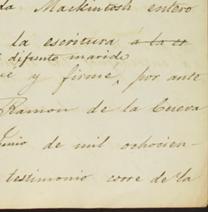 da Mackintosh entero
la escritura á la es
difunto marido
ce y firmé, por ante
Ramon de la Cueva
Junio de mil ochocien-
testimonio corre de la